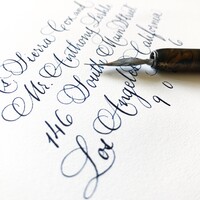 Sierra
Mr. Anthony
146 South Main Street
Los Angeles, California
90
6